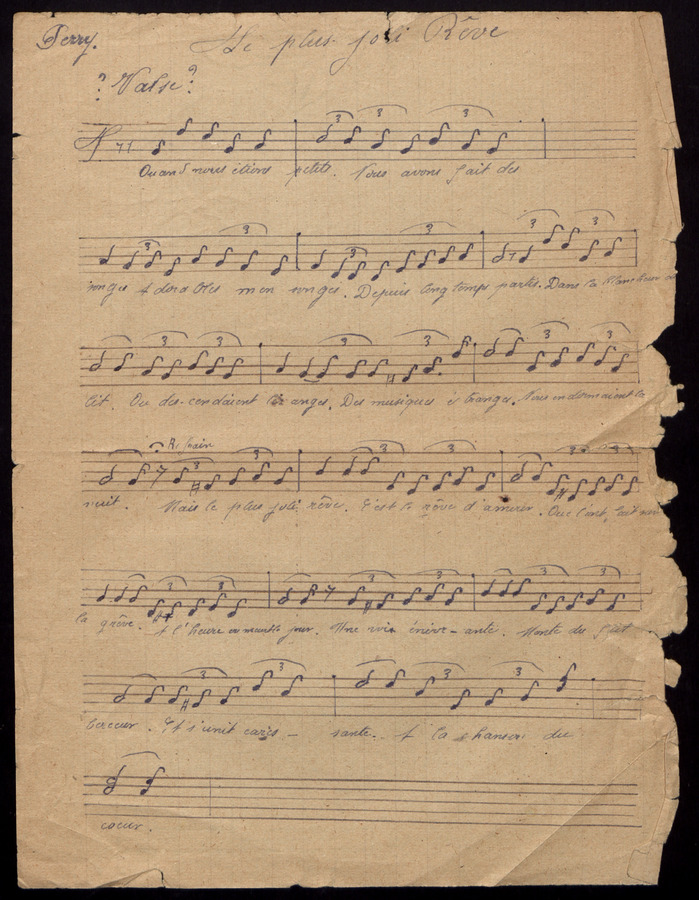 Perry.
Le plus joli Rêve
? Valse ?
Quand nous étions petits. Nous avons fait des
songes Adorables men songes. Depuis longtemps partis. Dans la blancheur du
lit. Ou des-cendaient les anges. Des musiques é tranges. Nous endormaient la
Refrain
nuit. Mais le plus joli rêve. C'est le rêve d'amour. Que l'ont fait sur
la grêve. A l'heure ou meurt le jour. Une voix énerv-ante. Monte du flot
berceur. Et s'unit cares - sante. A la chanson du
coeur.